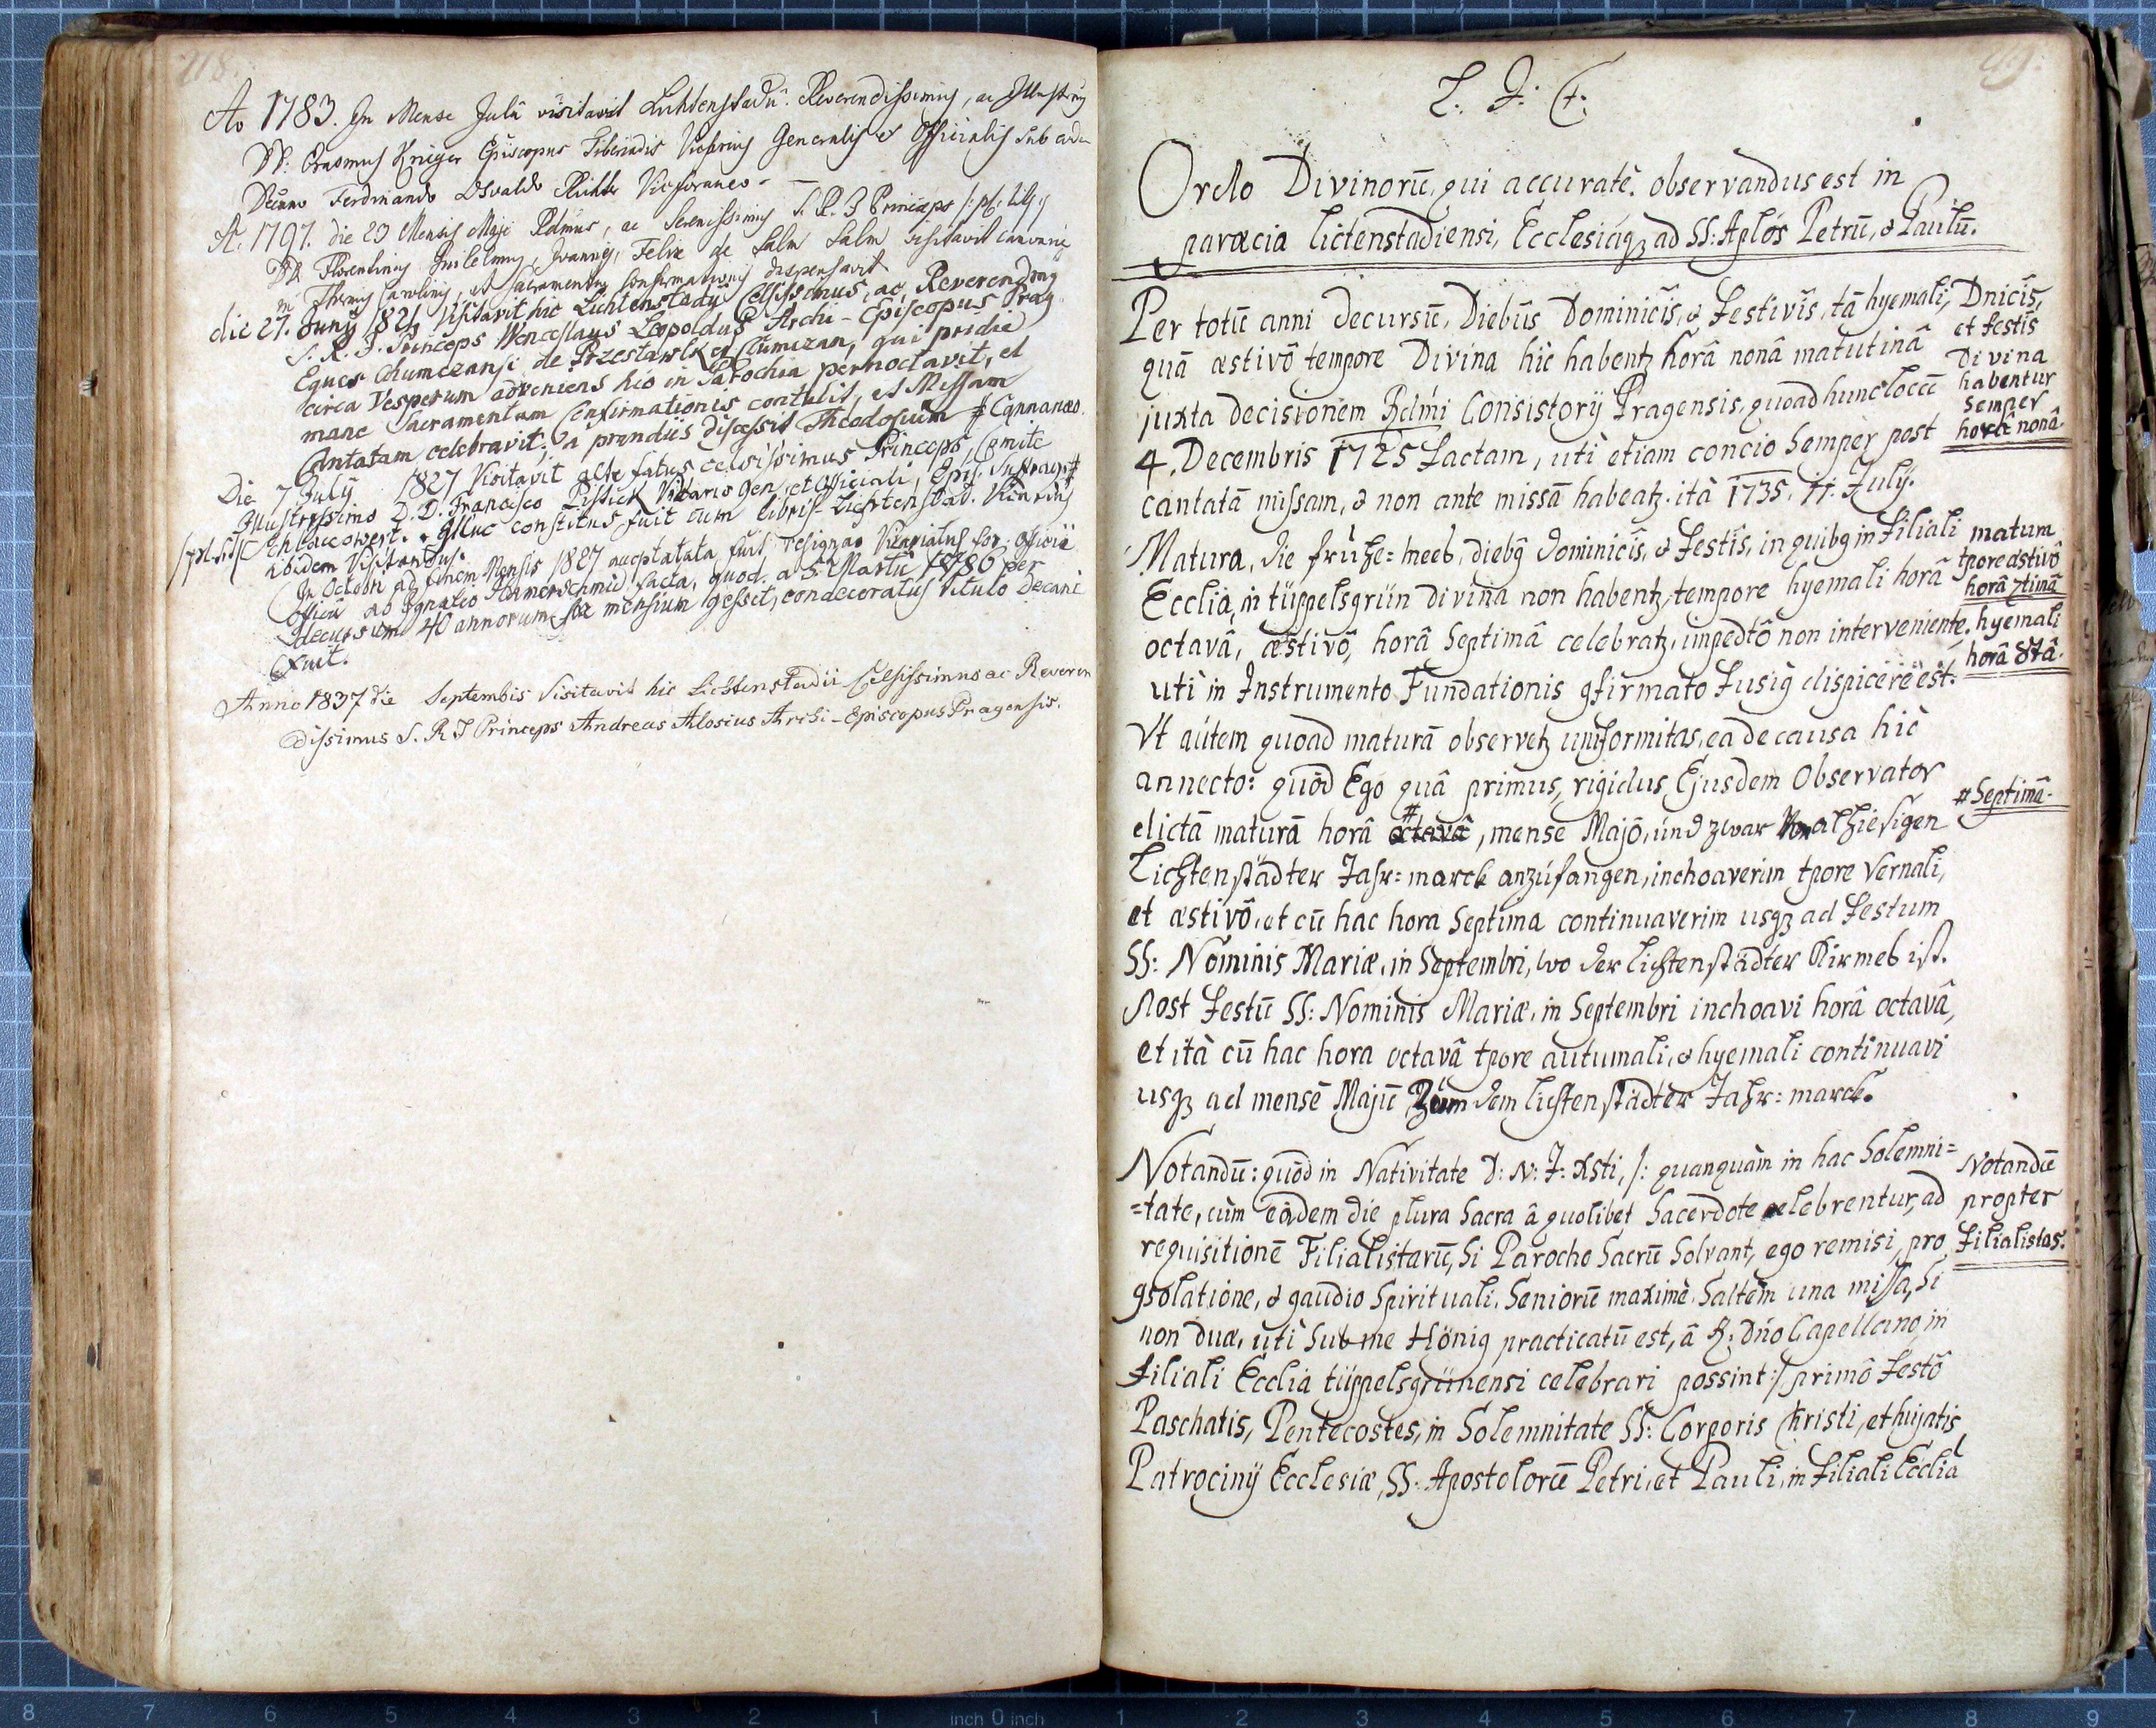 118.
Ao 1783. In Mense Julii visitavit Lichtenstadii Reverendissimus, ac Illustris
D: Erasmus Krieger Episcopus Tiberiadis Vicarius Generalis et Officialis sub
Ferdinando Osvaldo Richter Vicforaneo.
A. 1797. die 23 Mensis Maji Rdmus, ac Serenissimus S. R. I Princeps
D. Florentinus Guilelmus, Joannes, Felix de Salm Salm visitavit
in Thermis Carolinis, et Sacramentum Confirmationis dispensavit
die 27. Junÿ 1821 visitavit hic Lichtenstadii Celsissimus, ac Reverendmg
S. R. I. Princeps Wenceslaus Leopoldus Archi-Episcopus Prag
Eques Chumczansj de Przestawlk et Chumczan, qui pridie
circa Vesperum adveniens hic in Parochia pernoctavit, et
mane Sacramentum Confirmationis contulit, et Missam
Cantatam celebravit. a prandiis discessit Theodosium
Die 7 Julÿ 1827 Visitavit alte fatus celsissimus Princeps, Comite # Cannanaeo.
Illustrissimo D. D. Francisco Pistiek Vicario Gen. et Officiali, Epis. Suffrag#
Schlaccowert. Illuc constitus fuit cum libris Lichtenstad. Vicarius
ibidem Visitandus.
In Octobri ad finem Mensis 1827 acceptatata fuit resignao Vicariatus for. officii
Officii ab Ignatio Hamerschmid facta, quod a 5. Martii 1786 per
decursum 40 annorum sex mensium gessit, condecoratus titulo Decani
Exuit.
Anno 1837 die Septembis Visitavit hic Lichtenstadii Celsissimus ac Reveren
dissimus S. R I Princeps Andreas Alosius Archi-Episcopus Pragensis.
L. J. C.
Ordo Divinorū, qui accuratè observandus est in
parœcia lictenstadiensi, Ecclesiaqz ad SS: Aplós Petrū, & Paulū.
Per totū anni decursū, Diebus Dominicis, & Festivis, tā hyemali,
quā æstivô tempore Divina hic habentz horâ nonâ matutinâ
juxta decisionem Rdmi Consistorij Pragensis, quoad hunc locū
4. Decembris 1725 Factam, uti etiam concio semper post
cantatā missam, & non ante missā habeatz. ità 1735. 11. Julij.
Dnicis,
et festis
Divina
habentur
semper
horâ nonâ.
Matura, die frühe=meeß, diebg dominicis, & Festis, in quibg in Filiali
Ecclia in tüppelsgrün divina non habentz, tempore hyemali horâ
octavâ, æstivô, horâ septimâ celebratz, impedtô non interveniente.
uti in Instrumento Fundationis gfirmato Fusig dispicere est.
matum
tpore æstivô
horâ 7timâ
hyemali
horâ 8tâ.
Ut autem quoad maturā observetz uniformitas, ea de causa hic
annecto: quòd Ego quâ primus, rigidus, Ejusdem Observator
dictā maturā horâ # octavâ, mense Majô, und zwar Von alhiesigen
Lichtenstädter Jahr=marck anzufangen, inchoaverim tpore vernali,
et æstivô, et cū hac hora septima continuaverim usqz ad Festum
SS: Nominis Mariæ, in Septembri, wo der lichtenstädter Kirmeß ist.
Post Festū SS: Nominis Mariæ, in Septembri inchoavi horâ octavâ,
et ità cū hac hora octavâ tpore autumali, & hyemali continuavi
usqz ad mensē Majū Züm dem lichtenstädter Jahr=marck.
# septimâ.
Notandū: quòd in Nativitate D: N: J: Xsti, /: quanquàm in hac Solemni=
=tate, cùm eâdem die plura sacra â quolibet Sacerdote celebrentur, ad
requisitionē Filialistarū, si Parocho Sacrū Solvant, ego remisi, pro
gsolatione, & gaudio spirituali, Seniorū maximè, Saltèm una missa, si
non duæ, uti sub me Hönig practicatū est, â R: Dno Capellano, in
Filiali Ecclia tüppelsgrünensi celebrari possint:/ primô Festô
Paschatis, Pentecostes, in Solemnitate SS: Corporis Christi, et hujatis
Patrocinij Ecclesiæ, SS. Apostolorū Petri, et Pauli, in Filiali Ecclia
Notandū
propter
Filialistas.